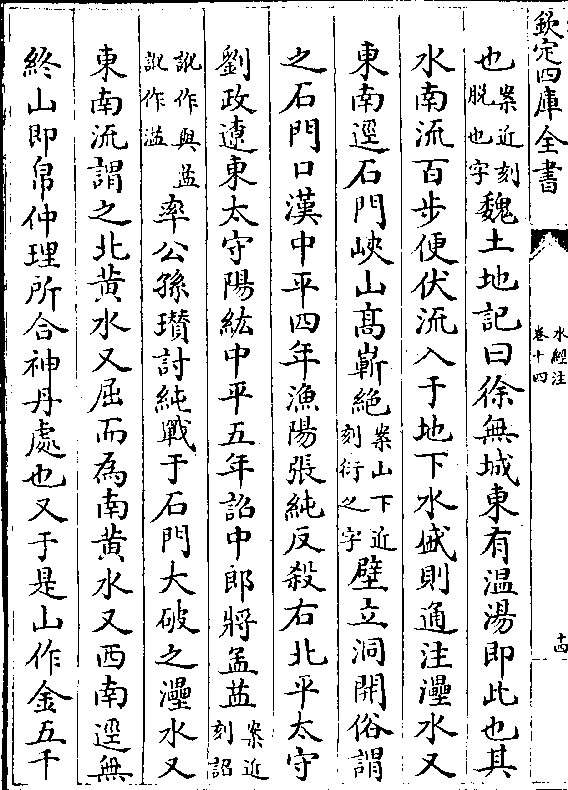 欽定四庫全書
水經注
卷十四
十四
也案近刻脱也字魏土地記曰徐無城東有温湯即此也其
水南流百步便伏流入于地下水盛則通注灅水又
東南逕石門峽山高嶄絶案山下近刻衍之字壁立洞開俗謂
之石門口漢中平四年漁陽張純反殺右北平太守
劉政遼東太守陽紘中平五年詔中郎將孟益案近刻詔
訛作與益訛作溢率公孫瓚討純戰于石門大破之灅水又
東南流謂之北黄水又屈而為南黄水又西南逕無
終山即帛仲理所合神丹處也又于是山作金五千